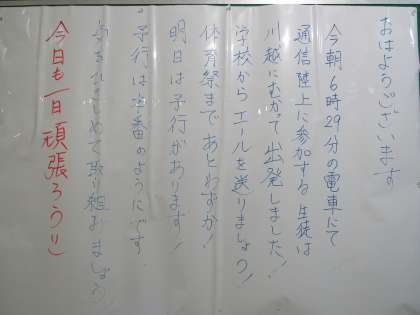 おはようございます
今朝6時29分の電車にて
通信陸上に参加する生徒は
川越にむかって出発しました!
学校からエールを送りましょう!
体育祭まであとわずか!
明日は予行があります!
予行は本番のようにです。
心をこめて取り組みましょう!
今日も一日頑張ろう!!